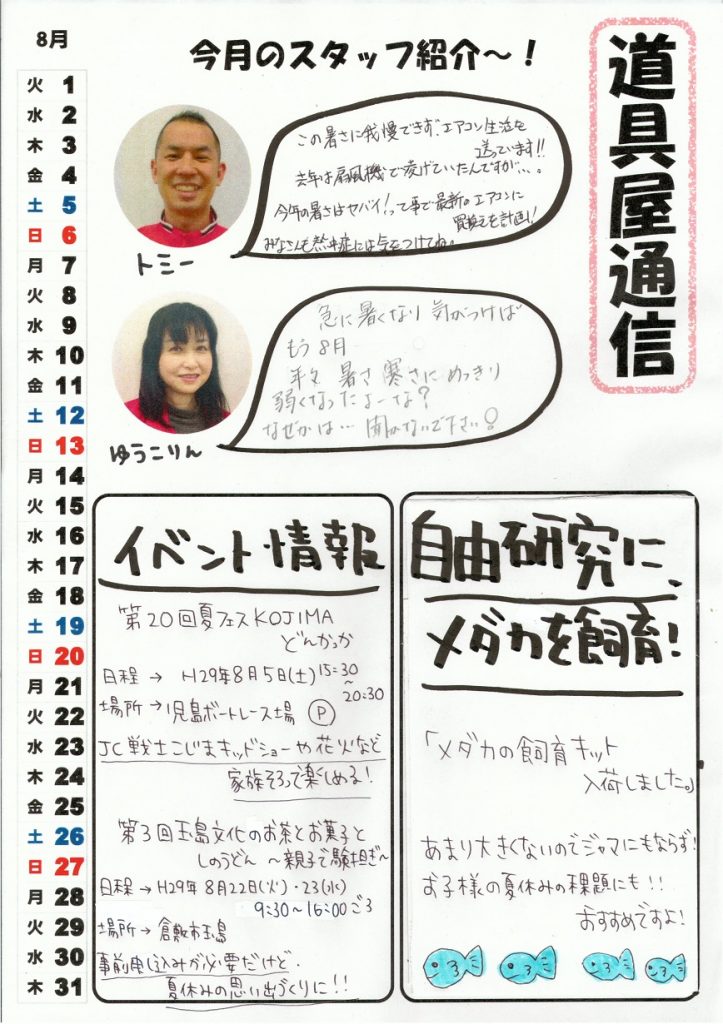 8月
火 1
水 2
木 3
金 4
土 5
日 6
月 7
火 8
水 9
木 10
金 11
土 12
日 13
月 14
火 15
水 16
木 17
金 18
土 19
日 20
月 21
火 22
水 23
木 24
金 25
土 26
日 27
月 28
火 29
水 30
木 31
今月のスタッフ紹介～！
道具屋通信
この暑さに我慢できず、エアコン生活を
送っています!!
去年は扇風機で凌げていたんですが…。
今年の暑さはヤバイ！って事で最新のエアコンに
買換えを計画!!
みなさんも熱中症には気をつけてね。
トミー
急に暑くなり 気がつけば
もう8月
年々 暑さ 寒さに めっきり
弱くなったよーな？
なぜかは… 聞かないで下さい
ゆうこりん
イベント情報
第20回夏フェスKOJIMA
どんかっか
日程 → H29年8月5日(土) 15:30
～
20:30
場所 → 児島ボートレース場 Ⓟ
JC戦士こじまキッドショーや花火など
家族そろって楽しめる！
第3回玉島文化のお茶とお菓子と
しのうどん ～親子で験担ぎ～
日程 → H29年 8月22日(火)・23(水)
9:30～16:00ごろ
場所 → 倉敷市玉島
事前申し込みが必要だけど、
夏休みの思い出づくりに!!
自由研究に、
メダカを飼育！
「メダカの飼育キット
入荷しました。」
あまり大きくないのでジャマにもならず！
お子様の夏休みの課題にも!!
おすすめですよ！